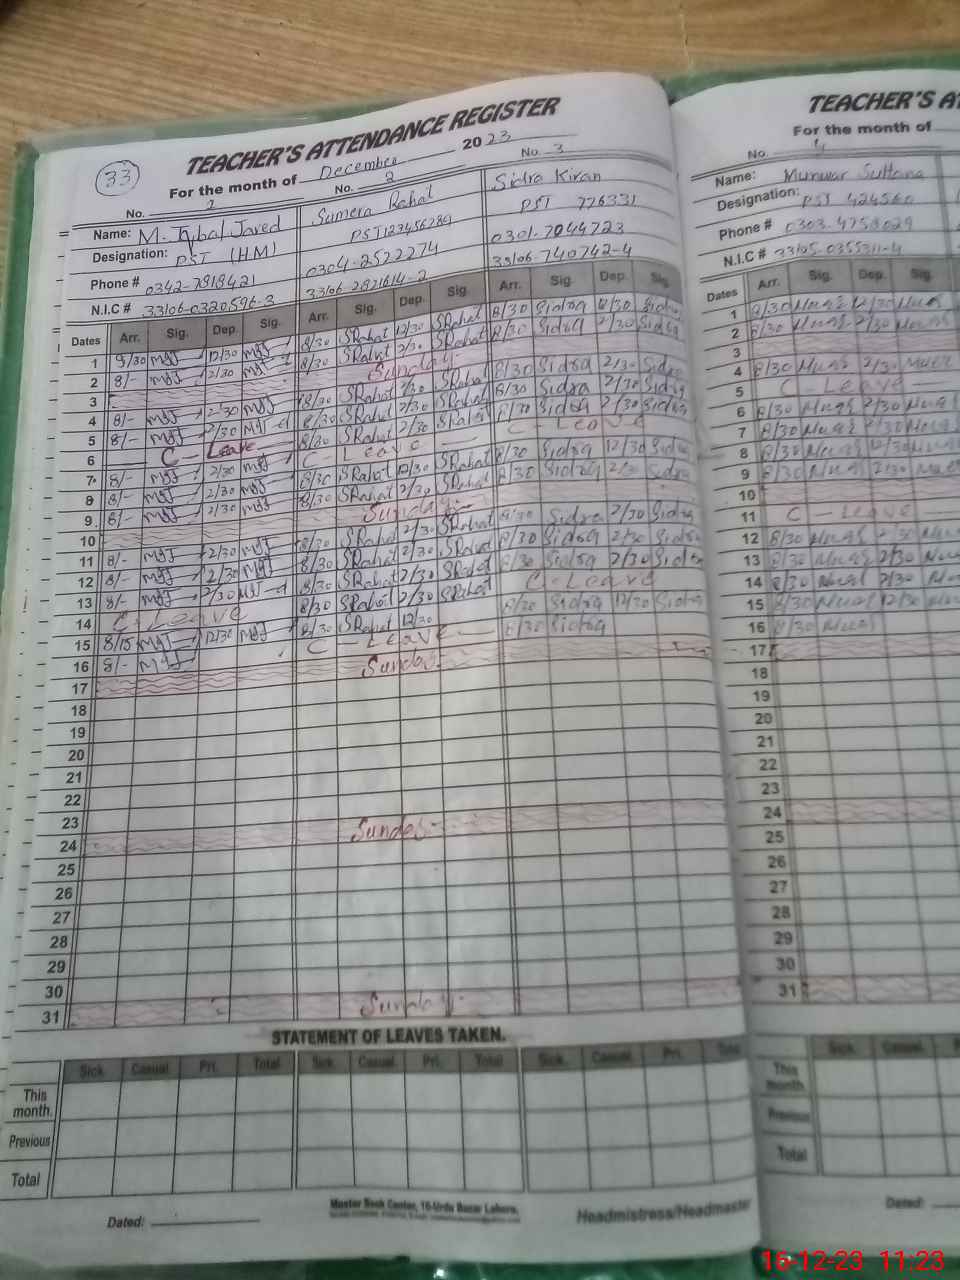 TEACHER'S ATTENDANCE REGISTER
33
For the month of December 2023
No. 2 No. 2 No. 3
Name: M. Iqbal Javed Sumera Rahat Sidra Kiran
Designation: PST (HM) PST 123456789 PST 776331
Phone # 0342-7818421 0304-2522274 0301-7044723
N.I.C # 33106-0320596-3 33106-2821614-2 33106-740742-4
Dates Arr. Sig. Dep. Sig. Arr. Sig. Dep. Sig. Arr. Sig. Dep. Sig.
1 9/30 12/30 8/30 SRahat 12/30 SRahat 8/30 Sidra 12/30 Sidra
2 8/- 2/30 8/30 SRahat 2/30 SRahat 8/30 Sidra 2/30 Sidra
3 Sunday
4 8/- 2/30 8/30 SRahat 2/30 SRahat 8/30 Sidra 2/30 Sidra
5 8/- 2/30 8/30 SRahat 2/30 SRahat 8/30 Sidra 2/30 Sidra
6 C - Leave 8/30 SRahat 2/30 SRahat 8/30 Sidra 2/30 Sidra
7 8/- 2/30 C - Leave C - Leave
8 8/- 2/30 8/30 SRahat 12/30 SRahat 8/30 Sidra 12/30 Sidra
9 8/- 2/30 8/30 SRahat 2/30 SRahat 8/30 Sidra 2/30 Sidra
10 Sunday
11 8/- 2/30 8/30 SRahat 2/30 SRahat 8/30 Sidra 2/30 Sidra
12 8/- 2/30 8/30 SRahat 2/30 SRahat 8/30 Sidra 2/30 Sidra
13 8/- 2/30 8/30 SRahat 2/30 SRahat 8/30 Sidra 2/30 Sidra
14 C - Leave 8/30 SRahat 2/30 SRahat C - Leave
15 8/15 12/30 8/30 SRahat 12/30 8/30 Sidra 12/30 Sidra
16 8/- C - Leave 8/30 Sidra
17 Sunday
18
19
20
21
22
23
24 Sunday
25
26
27
28
29
30
31 Sunday
STATEMENT OF LEAVES TAKEN.
Sick Casual Pri. Total Sick Casual Pri. Total Sick Casual Pri. Total
This month.
Previous
Total
Master Book Center, 16-Urdu Bazar Lahore.
Dated: Headmistress/Headmaster
TEACHER'S AT
For the month of
No. 4
Name: Munwar Sultana
Designation: PST 424560
Phone # 0303-4758029
N.I.C # 33105-035531-4
Dates Arr. Sig. Dep. Sig.
1 8/30 12/30
2 8/30 2/30
3
4 8/30 2/30
5 C - Leave
6 8/30 2/30
7 8/30 2/30
8 8/30 12/30
9 8/30 2/30
10
11 C - Leave
12 8/30 2/30
13 8/30 2/30
14 8/30 2/30
15 8/30 12/30
16 8/30
17
18
19
20
21
22
23
24
25
26
27
28
29
30
31
Sick Casual
This month.
Previous
Total
Dated:
16-12-23 11:23